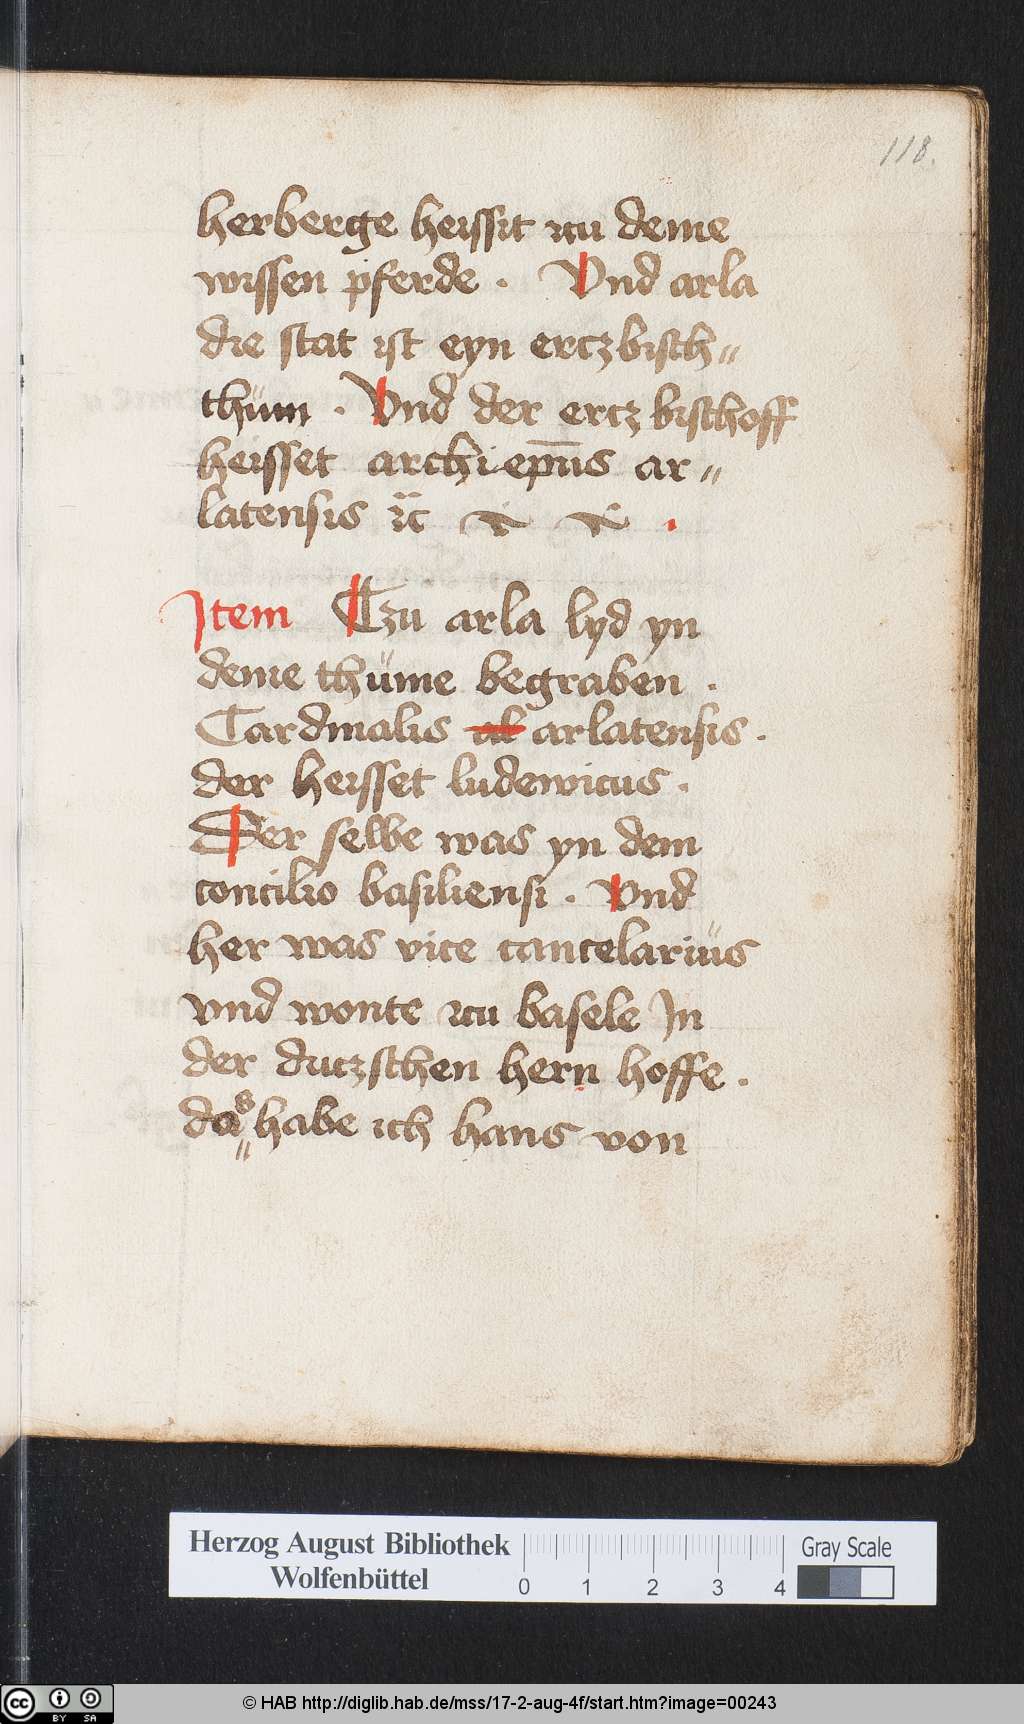 118.
herberge heissit zcu deme
wissen pferde . Vnd arla
die stat ist eyn ertzbisch〃
thüm . Vnd der ertz bischoff
heisset archiep̅us ar〃
latensis ꝛc
Jtem Tzu arla lyd yn
deme thüme begraben .
Cardinalis arlatensis .
der heisset ludewicus .
Der selbe was yn dem
concilio basiliensi . Vnd
her was vice cancelariüs
vnd wonte zcu basele Jn
der dutzschen hern hoffe .
das habe ich hans von
Herzog August Bibliothek
Wolfenbüttel
0 1 2 3 4
Gray Scale
cc BY SA
© HAB http://diglib.hab.de/mss/17-2-aug-4f/start.htm?image=00243